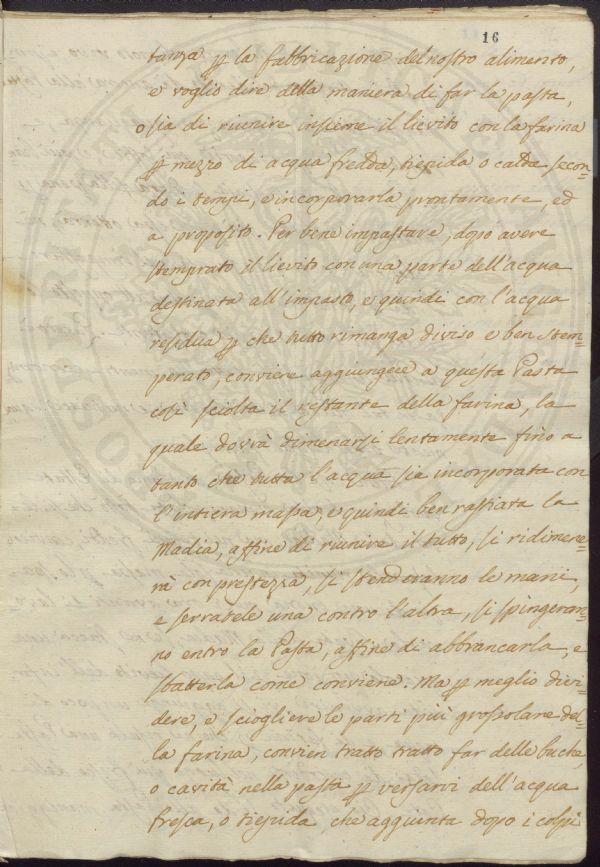 16
tanza ꝑ la fabbricazione del nostro alimento,
e voglio dire della maniera di far la pasta,
osia di riunire insieme il lievito con la farina
ꝑ mezzo di acqua fredda, tiepida o calda secon=
do i tempi, e incorporarla prontamente, ed
a proposito. Per bene impastare, dopo avere
stemprato il lievito con una parte dell'acqua
destinata all'impasto, e quindi con l'acqua
residua ꝑ che tutto rimanga diviso e ben stem=
perato, conviene aggiungere a questa Pasta
così sciolta il restante della farina, la
quale dovrà dimenarsi lentamente fino a
tanto che tutta l'acqua sia incorporata con
l'intiera massa, e quindi ben rastiata la
Madia, affine di riunire il tutto, si ridimene=
rà con prestezza, si stenderanno le mani,
e serratele una contro l'altra, si spingeran=
no entro la Pasta, affine di abbrancarla, e
sbatterla come conviene. Ma ꝑ meglio divi=
dere, e sciogliere le parti più grossolane del=
la farina, convien tratto tratto far delle buche,
o cavità nella pasta ꝑ versarvi dell'acqua
fresca, o tiepida, che aggiunta dopo i colpi